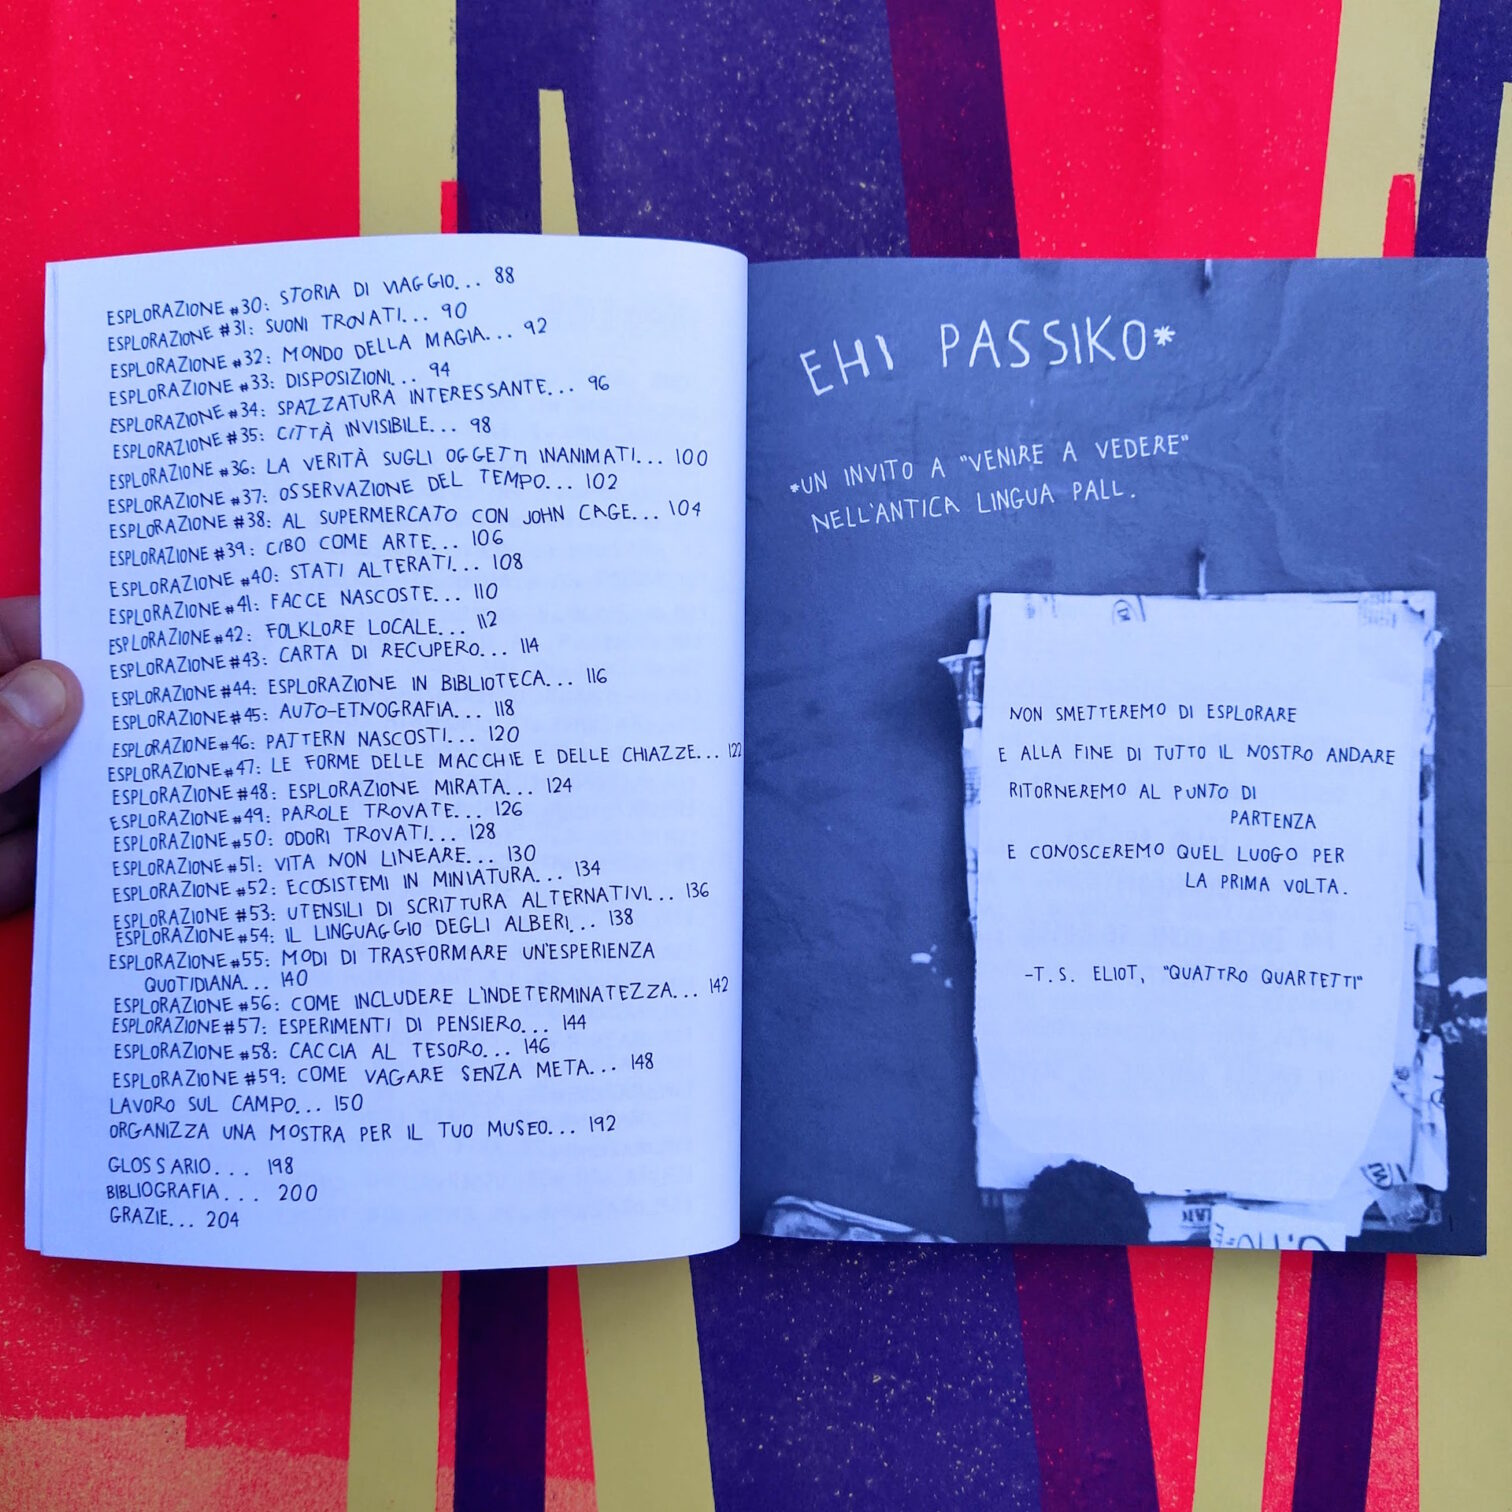 ESPLORAZIONE #30: STORIA DI VIAGGIO... 88
ESPLORAZIONE #31: SUONI TROVATI... 90
ESPLORAZIONE #32: MONDO DELLA MAGIA... 92
ESPLORAZIONE #33: DISPOSIZIONI... 94
ESPLORAZIONE #34: SPAZZATURA INTERESSANTE... 96
ESPLORAZIONE #35: CITTÀ INVISIBILE... 98
ESPLORAZIONE #36: LA VERITÀ SUGLI OGGETTI INANIMATI... 100
ESPLORAZIONE #37: OSSERVAZIONE DEL TEMPO... 102
ESPLORAZIONE #38: AL SUPERMERCATO CON JOHN CAGE... 104
ESPLORAZIONE #39: CIBO COME ARTE... 106
ESPLORAZIONE #40: STATI ALTERATI... 108
ESPLORAZIONE #41: FACCE NASCOSTE... 110
ESPLORAZIONE #42: FOLKLORE LOCALE... 112
ESPLORAZIONE #43: CARTA DI RECUPERO... 114
ESPLORAZIONE #44: ESPLORAZIONE IN BIBLIOTECA... 116
ESPLORAZIONE #45: AUTO-ETNOGRAFIA... 118
ESPLORAZIONE #46: PATTERN NASCOSTI... 120
ESPLORAZIONE #47: LE FORME DELLE MACCHIE E DELLE CHIAZZE... 122
ESPLORAZIONE #48: ESPLORAZIONE MIRATA... 124
ESPLORAZIONE #49: PAROLE TROVATE... 126
ESPLORAZIONE #50: ODORI TROVATI... 128
ESPLORAZIONE #51: VITA NON LINEARE... 130
ESPLORAZIONE #52: ECOSISTEMI IN MINIATURA... 134
ESPLORAZIONE #53: UTENSILI DI SCRITTURA ALTERNATIVI... 136
ESPLORAZIONE #54: IL LINGUAGGIO DEGLI ALBERI... 138
ESPLORAZIONE #55: MODI DI TRASFORMARE UN'ESPERIENZA
QUOTIDIANA... 140
ESPLORAZIONE #56: COME INCLUDERE L'INDETERMINATEZZA... 142
ESPLORAZIONE #57: ESPERIMENTI DI PENSIERO... 144
ESPLORAZIONE #58: CACCIA AL TESORO... 146
ESPLORAZIONE #59: COME VAGARE SENZA META... 148
LAVORO SUL CAMPO... 150
ORGANIZZA UNA MOSTRA PER IL TUO MUSEO... 192
GLOSSARIO... 198
BIBLIOGRAFIA... 200
GRAZIE... 204
EHI PASSIKO*
*UN INVITO A "VENIRE A VEDERE"
NELL'ANTICA LINGUA PALI.
NON SMETTEREMO DI ESPLORARE
E ALLA FINE DI TUTTO IL NOSTRO ANDARE
RITORNEREMO AL PUNTO DI
PARTENZA
E CONOSCEREMO QUEL LUOGO PER
LA PRIMA VOLTA.
-T.S. ELIOT, "QUATTRO QUARTETTI"